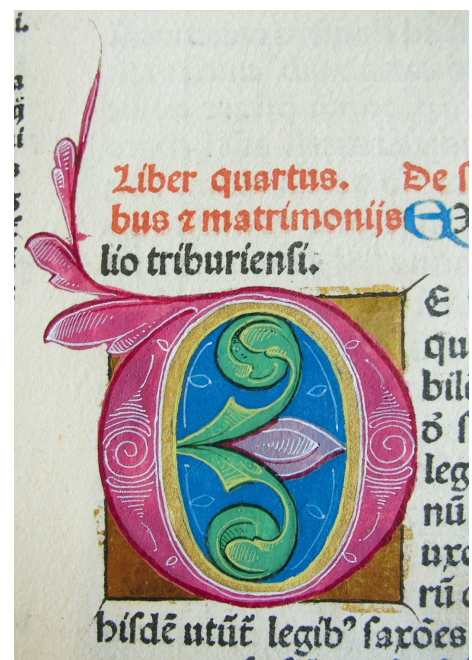 Liber quartus. De s
bus ⁊ matrimonijs Ex
lio triburiensi.
DE
qu
bili
leg
nū
uxo
rū
bisdē utūt legibꝰ saxōes